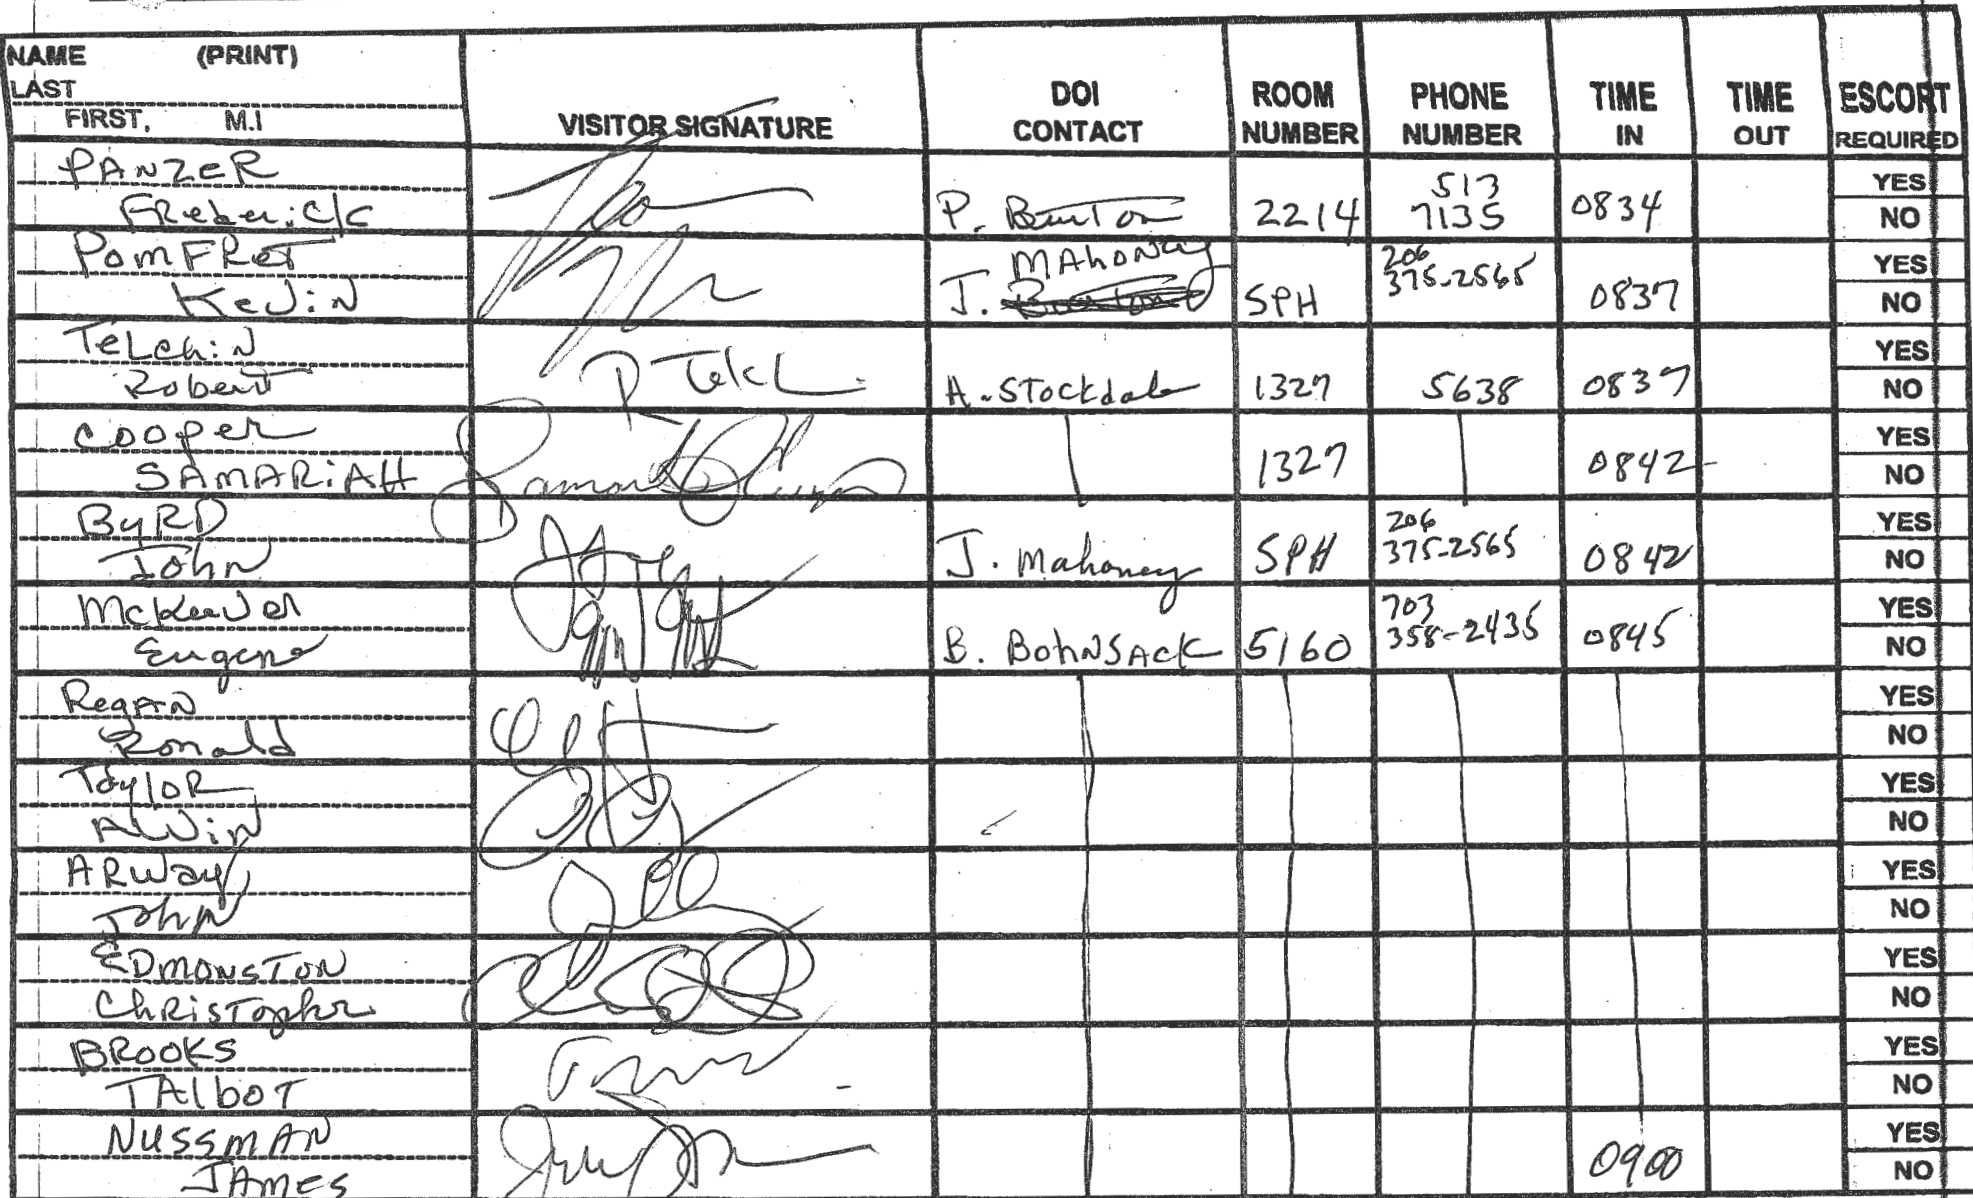 NAME (PRINT)
LAST
FIRST, M.I
VISITOR SIGNATURE
DOI CONTACT
ROOM NUMBER
PHONE NUMBER
TIME IN
TIME OUT
ESCORT REQUIRED
PANZER
Frederick
P. Benton 2214 513 7135 0834 YES NO
POMFRET
Kevin
J. MAHONEY SPH 206 375-2565 0837 YES NO
Telchin
Robert
A. Stockdale 1327 5638 0837 YES NO
Cooper
SAMARiAH
1327 0842 YES NO
ByRD
John
J. Mahoney SPH 206 375-2565 0842 YES NO
McKeever
Eugene
B. BOHNSACK 5160 703 358-2435 0845 YES NO
Regan
Ronald
YES NO
Taylor
Alvin
YES NO
ARWay
John
YES NO
EDMONSTON
Christopher
YES NO
BROOKS
TAlbOT
YES NO
NUSSMAN
JAMES
0900 YES NO